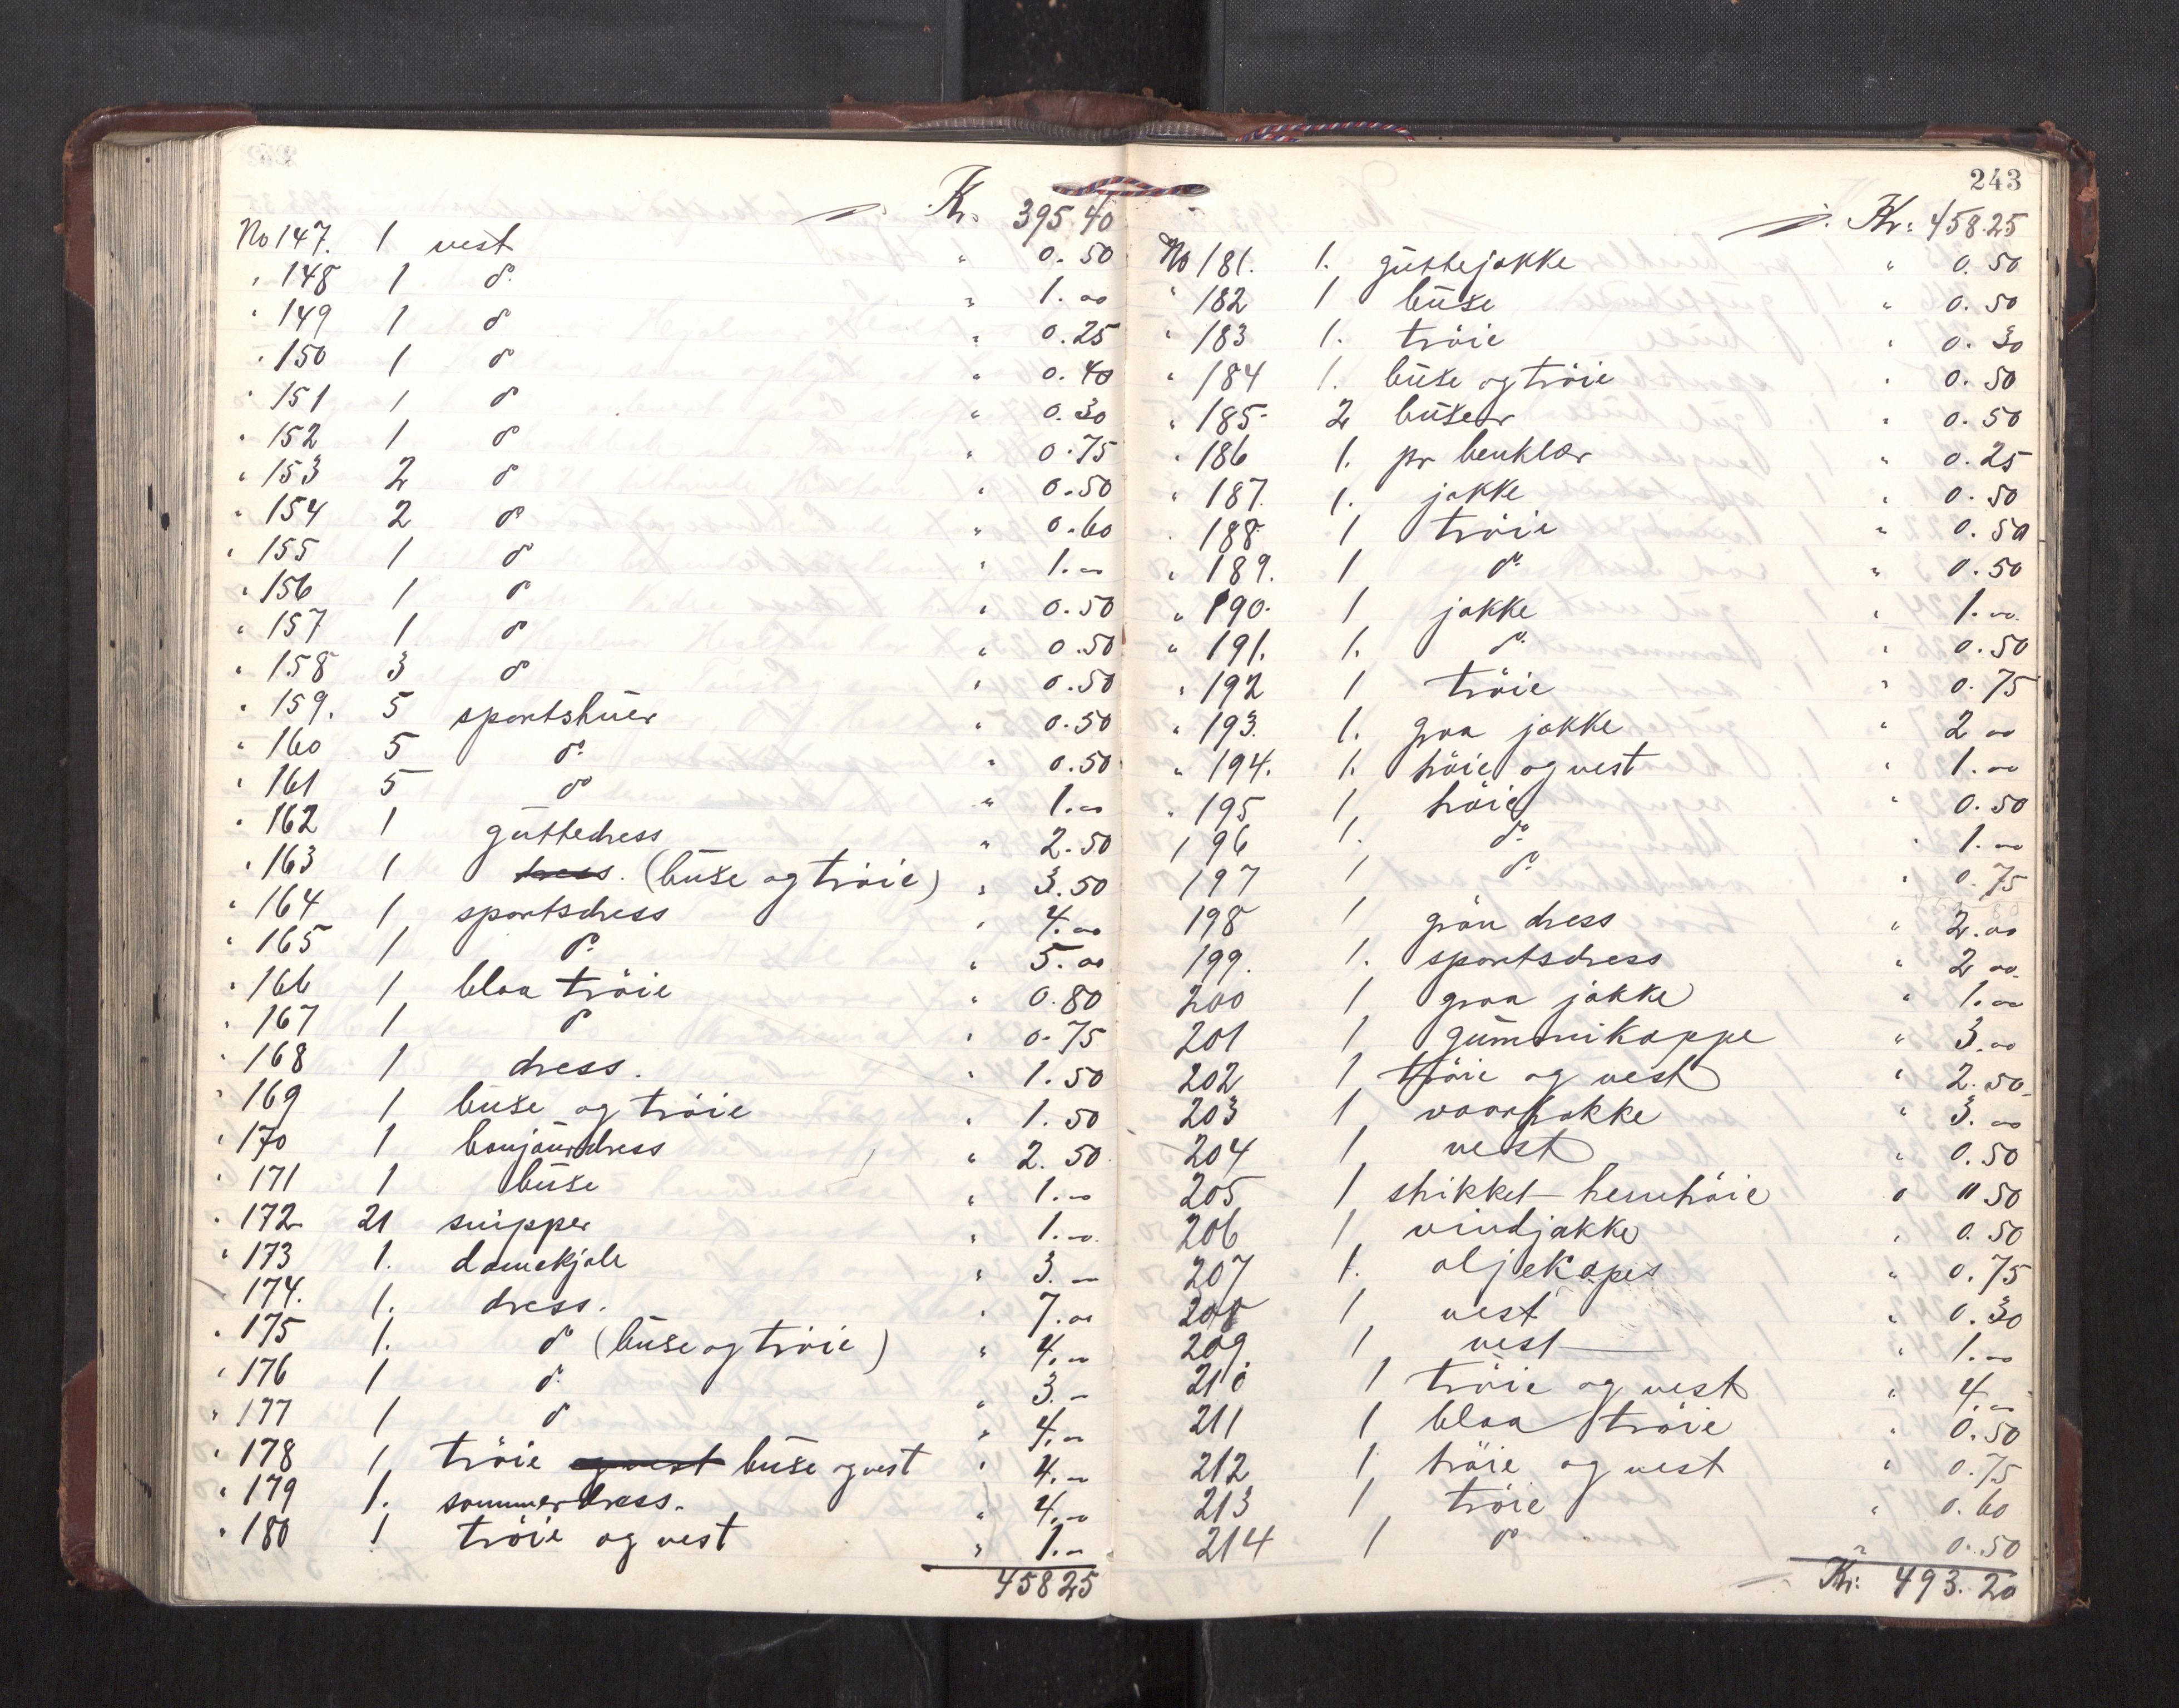 Kr. 395.40
No 147. 1 vest " 0.50
" 148 1 do. " 1.00
" 149 1 do " 0.25
" 150 1 do " 0.40
" 151 1 do " 0.30
" 152 1 do " 0.75
" 153 2 do " 0.50
" 154 2 do " 0.60
" 155 1 do " 1.00
" 156 1 do " 0.50
" 157 1 do " 0.50
" 158 3 do " 0.50
" 159. 5 sportshuer " 0.50
" 160 5 do. " 0.50
" 161 5 do " 1.00
" 162 1 guttedress " 2.50
" 163 1 dress. (buxe og tröie) " 3.50
" 164 1 sportsdress " 4.00
" 165 1 do. " 5.00
" 166 1 blaa tröie " 0.80
" 167 1 do " 0.75
" 168 1 dress. " 1.50
" 169 1 buxe og tröie " 1.50
" 170 1 bonjourdress " 2.50
" 171 1 buxe " 1.00
" 172 21 snipper " 1.00
" 173 1. damekjole " 3.00
174. 1. dress. " 7.00
" 175 1. do (buxe og tröie) " 4.00
" 176 1 do. " 3.–
" 177 1 do " 4.00
" 178 1 tröie og vest buxe og vest " 4.00
" 179 1. sommerdress. " 4.00
" 180 1 tröie og vest " 1.–
45825
243
Kr: 458.25
No 181. 1. guttejakke " 0.50
" 182 1 buxe " 0.50
" 183 1. tröie " 0.30
" 184 1. buxe og tröie " 0.50
" 185 2 buxer " 0.50
" 186 1. pr benklær " 0.25
" 187. 1. jakke " 0.50
" 188 1 tröie " 0.50
" 189. 1 do. " 0.50
" 190. 1 jakke " 1.00
" 191. 1. do. " 0.50
" 192 1 tröie " 0.75
" 193. 1. graa jakke " 2 00
" 194. 1. tröie og vest " 1.00
" 195 1 tröie " 0.50
196 1. do. " 1.00
197 1 do. " 0.75
198 1 grön dress " 2.00
199. 1. sportsdress " 2 00
200 1 graa jakke " 1.00
201 1 gummikappe " 3.00
202 1 tröie og vest " 2.50
203 1 vaarfrakke " 3.00
204 1 vest " 0.50
205 1 strikket herretröie 0 50
206 1 vindjakke " 0.50
207 1. oljekapes " 0.75
208 1 vest " 0.30
209 1 vest " 1.00
210 1 tröie og vest " 4.00
211 1 blaa tröie " 0.50
212 1 tröie og vest " 0.75
213 1 tröie " 0.60
214 1 do " 0.50
Kr: 493.20